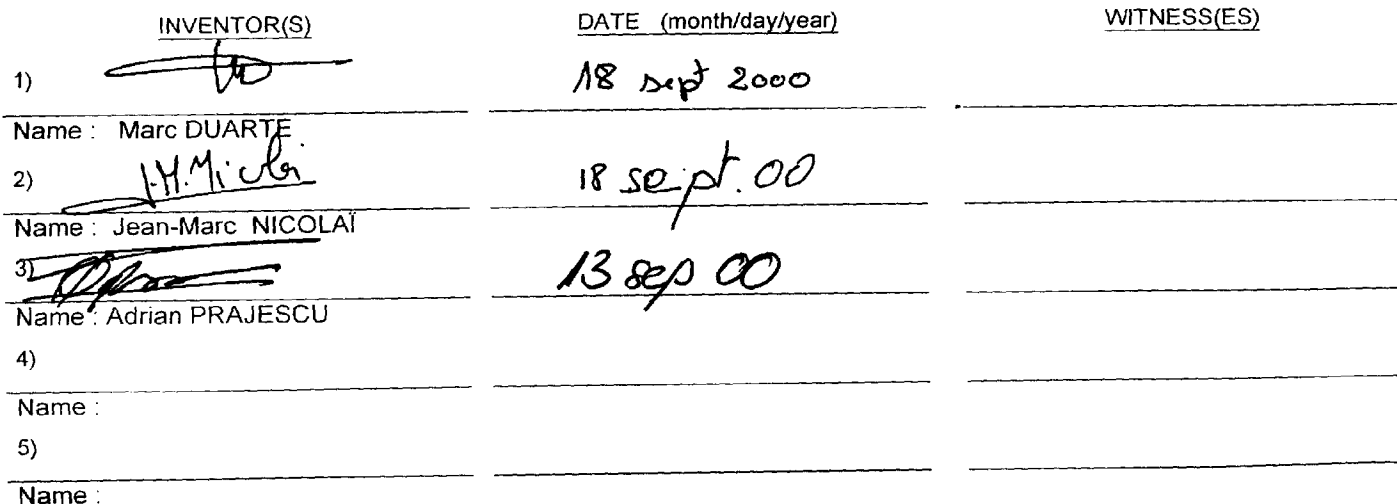 INVENTOR(S) DATE (month/day/year) WITNESS(ES)
1) 18 sept 2000
Name : Marc DUARTE
2) J.M. Nicolaï 18 sept. 00
Name : Jean-Marc NICOLAÏ
3) 13 sep 00
Name : Adrian PRAJESCU
4)
Name :
5)
Name :